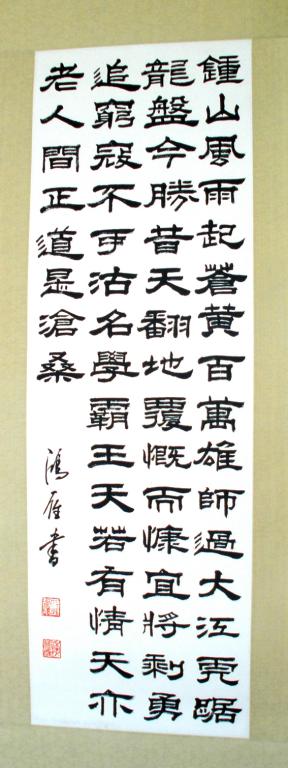 鍾山風雨起蒼黄百萬雄師過大江虎踞
龍盤今勝昔天翻地覆慨而慷宜將剩勇
追窮寇不可沽名學霸王天若有情天亦
老人間正道是滄桑
鴻雁書